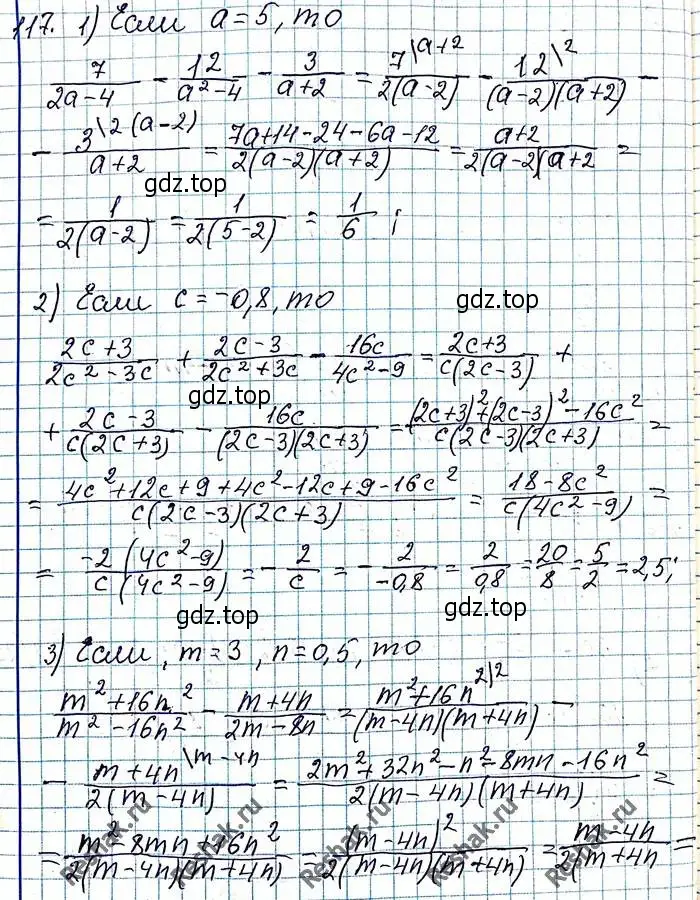 117. 1) Если a=5, то
7/(2a-4) - 12/(a²-4) - 3/(a+2) = 7\a+2/(2(a-2)) - 12\2/((a-2)(a+2)) -
- 3\2(a-2)/(a+2) = (7a+14-24-6a-12)/(2(a-2)(a+2)) = (a+2)/(2(a-2)(a+2 =
gdz.top
= 1/(2(a-2)) = 1/(2(5-2)) = 1/6 ;
2) Если c=-0,8, то
gdz.top
(2c+3)/(2c²-3c) + (2c-3)/(2c²+3c) - 16c/(4c²-9) = (2c+3)/(c(2c-3)) +
gdz.top
+ (2c-3)/(c(2c+3)) - 16c/((2c-3)(2c+3)) = ((2c+3)²+(2c-3)²-16c²)/(c(2c-3)(2c+3)) =
= (4c²+12c+9+4c²-12c+9-16c²)/(c(2c-3)(2c+3)) = (18-8c²)/(c(4c²-9)) =
= -2(4c²-9)/(c(4c²-9)) = -2/c = -2/(-0,8) = 2/0,8 = 20/8 = 5/2 = 2,5;
gdz.top
gdz.top
3) Если, m=3, n=0,5, то
(m²+16n²)/(m²-16n²) - (m+4n)/(2m-8n) = (m²+16n²\2)/((m-4n)(m+4n)) -
- (m+4n\m-4n)/(2(m-4n)) = (2m²+32n²-n²-8mn-16n²)/(2(m-4n)(m+4n)) =
= (m²-8mn+16n²)/(2(m-4n)(m+4n)) = (m-4n)²/(2(m-4n)(m+4n)) = (m-4n)/(2(m+4n =
Reshak.ru
Reshak.ru
Reshak.ru
Reshak.ru